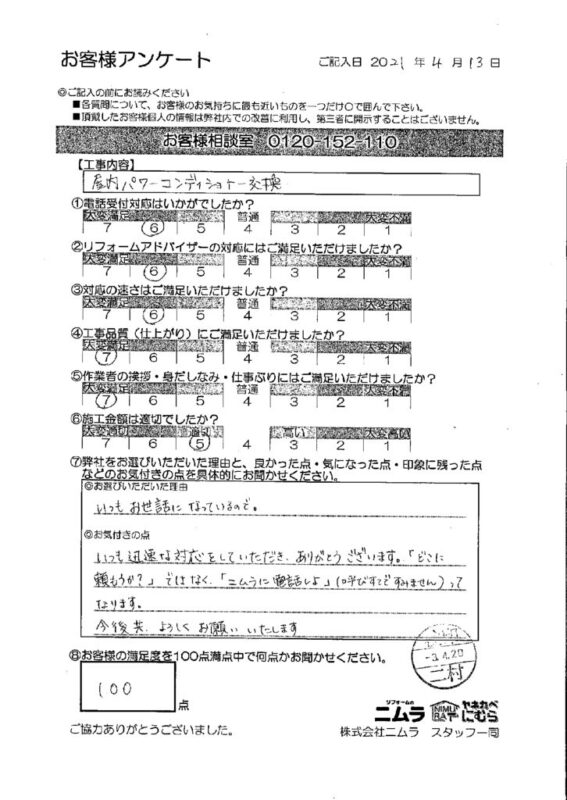 お客様アンケート
ご記入日 2021 年 4 月 13 日
◎ご記入の前にお読みください
■各質問について、お客様のお気持ちに最も近いものを一つだけ○で囲んで下さい。
■頂戴したお客様個人の情報は弊社内での改善に利用し、第三者に開示することはございません。
お客様相談室 0120-152-110
【工事内容】
屋内パワーコンディショナー交換
①電話受付対応はいかがでしたか?
大変満足 普通 大変不満
7 6 5 4 3 2 1
②リフォームアドバイザーの対応にはご満足いただけましたか?
大変満足 普通 大変不満
7 6 5 4 3 2 1
③対応の速さはご満足いただけましたか?
大変満足 普通 大変不満
7 6 5 4 3 2 1
④工事品質(仕上がり)にご満足いただけましたか?
大変満足 普通 大変不満
7 6 5 4 3 2 1
⑤作業者の挨拶・身だしなみ・仕事ぶりにはご満足いただけましたか?
大変満足 普通 大変不満
7 6 5 4 3 2 1
⑥施工金額は適切でしたか?
大変適切 適切 高い 大変高い
7 6 5 4 3 2 1
⑦弊社をお選びいただいた理由と、良かった点・気になった点・印象に残った点
などのお気付きの点を具体的にお聞かせください。
◎お選びいただいた理由
いつもお世話になっているので。
◎お気付きの点
いつも迅速な対応をしていただき、ありがとうございます。「どこに
頼もうか?」ではなく、「ニムラに電話しよ」(呼びすてですみません)って
なります。
今後共、よろしくお願いいたします
⑧お客様の満足度を100点満点中で何点かお聞かせください。
100
点
3.4.20
二村
リフォームの
ニムラ
NIMU
RA
ヤネカベ
にむら
ご協力ありがとうございました。
株式会社ニムラ スタッフ一同